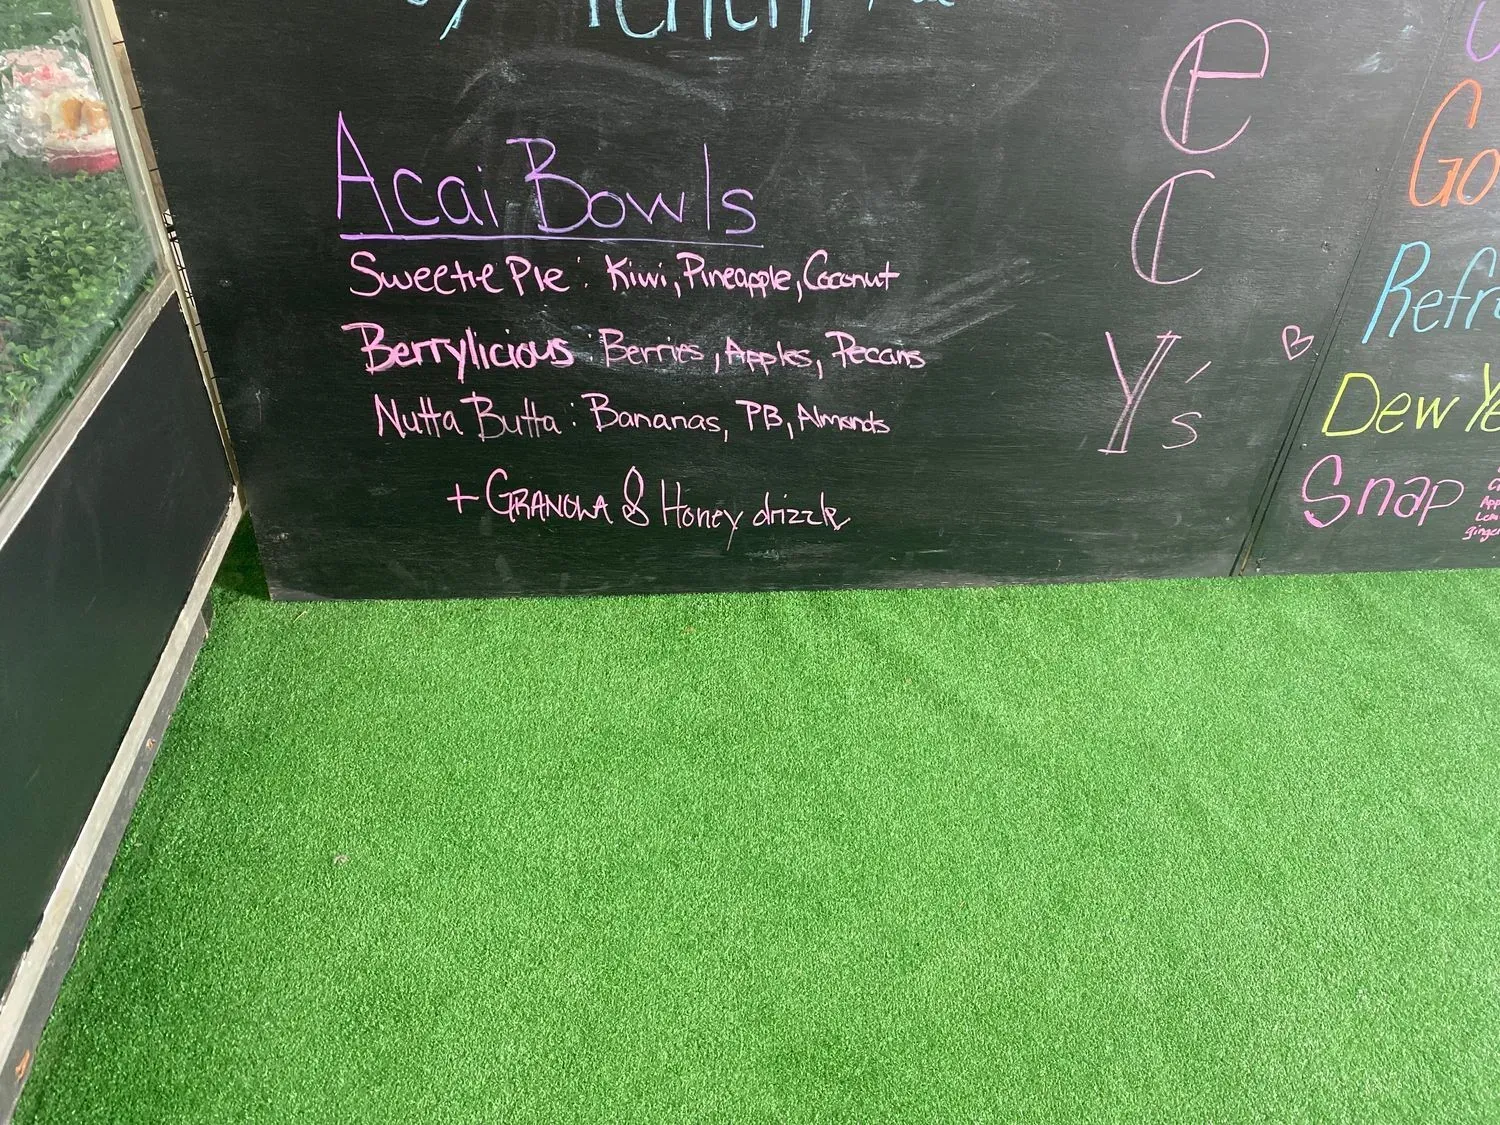 Acai Bowls
Sweetie Pie : Kiwi, Pineapple, Coconut
Berrylicious : Berries, Apples, Pecans
Nutta Butta : Bananas, PB, Almonds
+ GRANOLA & Honey drizzle
e
C
Y's
Go
Refr
Dew Ye
Snap
App
Lem
ginger